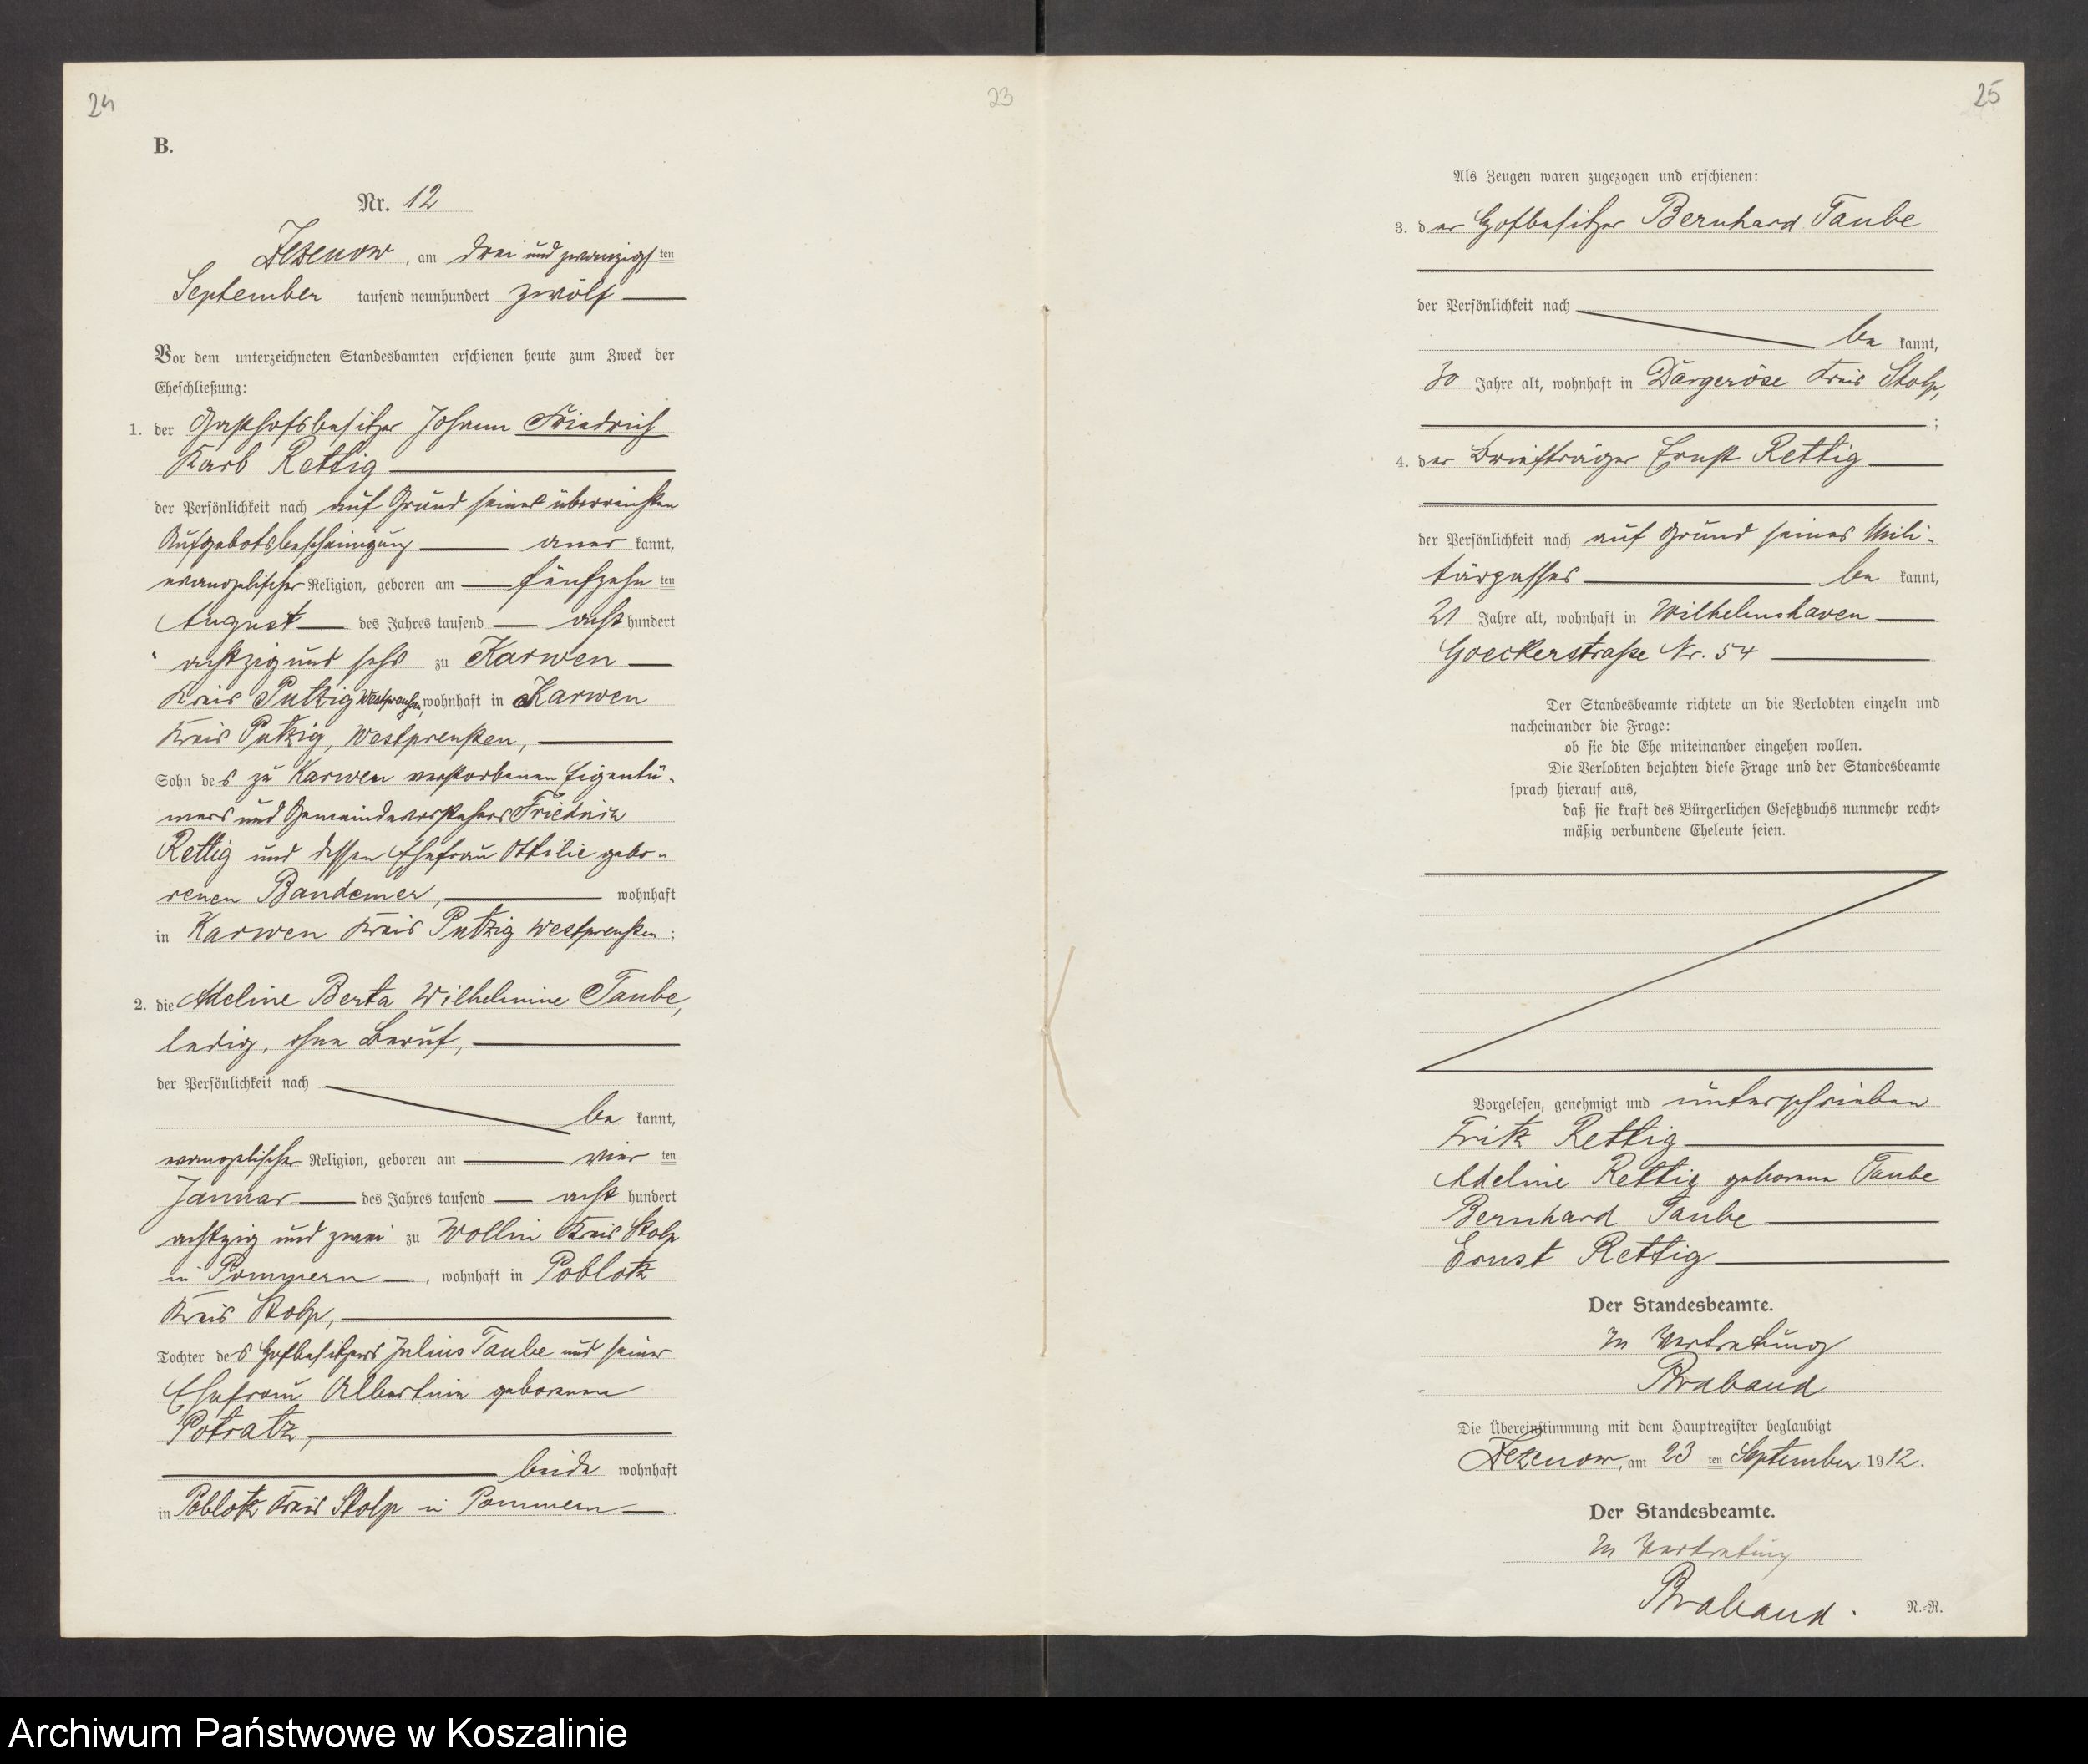 24
23
B.
Nr. 12
Zezenow, am drei und zwanzigsten
September tausend neunhundert zwölf
Vor dem unterzeichneten Standesbamten erschienen heute zum Zweck der
Eheschließung:
1. der Gasthofsbesitzer Johann Friedrich
Karl Rettig
der Persönlichkeit nach auf Grund seiner überreichten
Aufgebotsbescheinigung aner kannt,
evangelischer Religion, geboren am fünfzehn ten
August des Jahres tausend acht hundert
achtzig und sechs zu Karwen
Kreis Putzig Westpreußen, wohnhaft in Karwen
Kreis Putzig, Westpreußen,
Sohn des zu Karwen verstorbenen Eigentü-
mers und Gemeindevorstehers Friedrich
Rettig und dessen Ehefrau Ottilie gebo-
renen Bandemer, wohnhaft
in Karwen Kreis Putzig Westpreußen;
2. die Adeline Berta Wilhelmine Taube,
ledig, ohne Beruf,
der Persönlichkeit nach
be kannt,
evangelischer Religion, geboren am vier ten
Januar des Jahres tausend acht hundert
achtzig und zwei zu Wollin Kreis Stolp
in Pommern, wohnhaft in Poblotz
Kreis Stolp,
Tochter des Hofbesitzers Julius Taube und seiner
Ehefrau Albertine geborenen
Potratz,
beide wohnhaft
in Poblotz Kreis Stolp in Pommern.
25
Als Zeugen waren zugezogen und erschienen:
3. der Hofbesitzer Bernhard Taube
der Persönlichkeit nach
be kannt,
30 Jahre alt, wohnhaft in Dargeröse Kreis Stolp,
;
4. der Briefträger Ernst Rettig
der Persönlichkeit nach auf Grund seines Mili-
tärpasses be kannt,
21 Jahre alt, wohnhaft in Wilhelmshaven
Goeckerstraße Nr. 54
Der Standesbeamte richtete an die Verlobten einzeln und
nacheinander die Frage:
ob sie die Ehe miteinander eingehen wollen.
Die Verlobten bejahten diese Frage und der Standesbeamte
sprach hierauf aus,
daß sie kraft des Bürgerlichen Gesetzbuchs nunmehr recht-
mäßig verbundene Eheleute seien.
Vorgelesen, genehmigt und unterschrieben
Fritz Rettig
Adeline Rettig geborene Taube
Bernhard Taube
Ernst Rettig
Der Standesbeamte.
In Vertretung
Braband
Die Übereinstimmung mit dem Hauptregister beglaubigt
Zezenow, am 23 ten September 1912.
Der Standesbeamte.
In Vertretung
Braband.
N.-R.
Archiwum Państwowe w Koszalinie